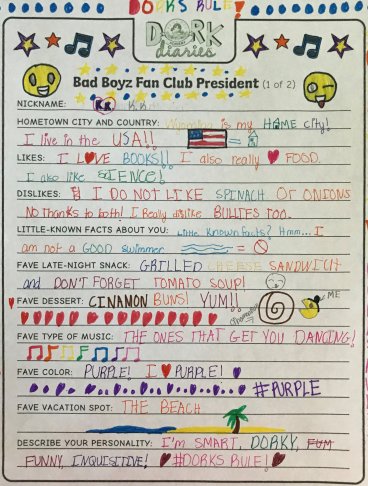 DORKS RULE!
DORK
diaries
Bad Boyz Fan Club President (1 of 2)
NICKNAME: KR K.K.
HOMETOWN CITY AND COUNTRY: Wyoming is my HOME city!
I live in the USA!!
LIKES: I LOVE BOOKS!! I also really ♥ FOOD.
I also like SCIENCE!
DISLIKES: I DO NOT LIKE SPINACH Or ONIONS
No thanks to both! I Really dislike BULLIES TOO.
LITTLE-KNOWN FACTS ABOUT YOU: Little known facts? Hmm... I
am not a GOOD swimmer =
FAVE LATE-NIGHT SNACK: GRILLED CHEESE SANDWICH
and DON'T FORGET TOMATO SOUP!
FAVE DESSERT: CINAMON BUNS! YUM!!
ME
FAVE TYPE OF MUSIC: THE ONES THAT GET YOU DANCING!
FAVE COLOR: PURPLE! I ♥ PURPLE! ♥
#PURPLE
FAVE VACATION SPOT: THE BEACH
DESCRIBE YOUR PERSONALITY: I'M SMART, DORKY, FUM
FUNNY, INQUISITIVE! ♥ #DORKS RULE! ♥